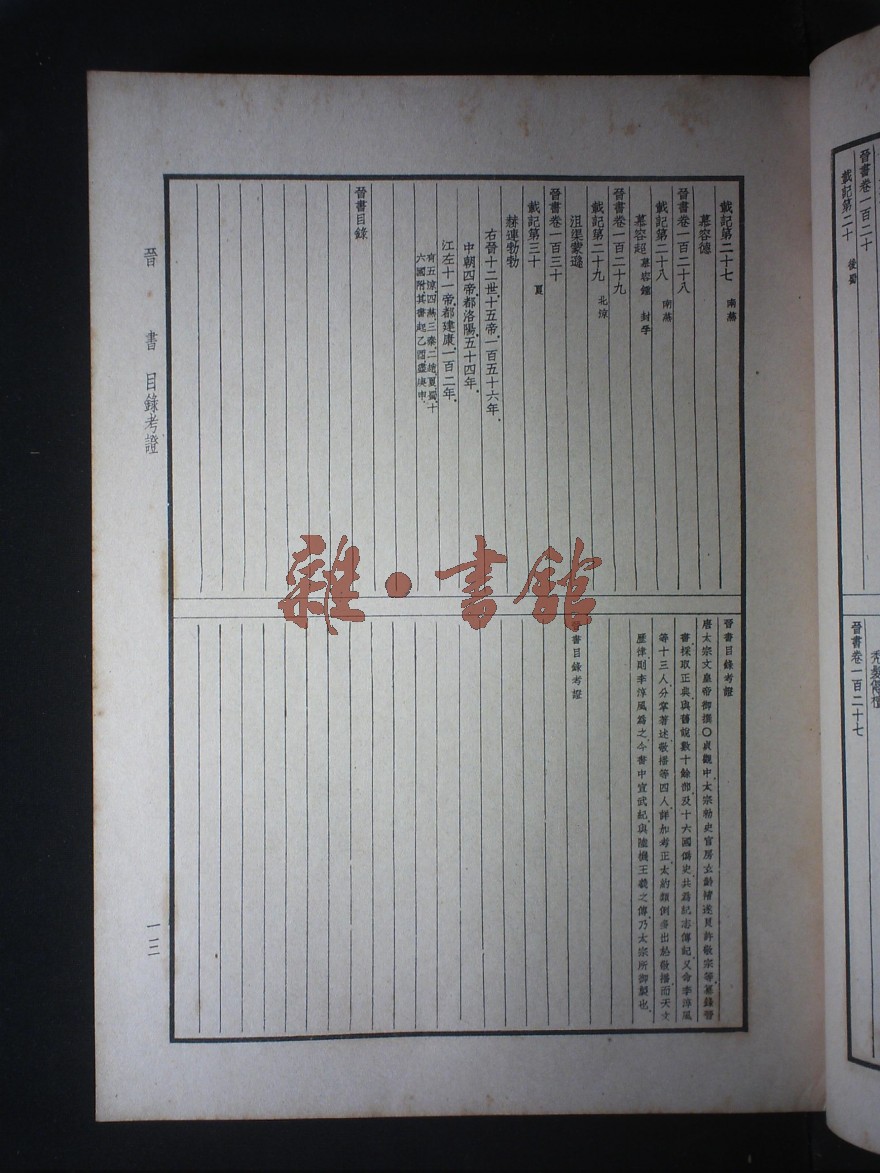 載記第二十七 南燕
慕容德
晉書卷一百二十八
載記第二十八 南燕
慕容超 慕容鍾 封孚
晉書卷一百二十九
載記第二十九 北涼
沮渠蒙遜
晉書卷一百三十
載記第三十 夏
赫連勃勃
右晉十二世.十五帝.一百五十六年.
中朝四帝.都洛陽.五十四年.
江左十一帝.都建康.一百二年.
有五涼.四燕.三秦.二趙.夏.蜀.十
六國附.其書起乙酉.盡庚申.
晉書目錄
晉書目錄考證
唐太宗文皇帝御撰○貞觀中.太宗勅史官房玄齡褚遂良許敬宗等.纂錄晉
書.採取正典.與舊說數十餘部.及十六國僞史.共爲紀志傳記.又命李淳風
等十三人分掌著述.敬播等四人.詳加考正.大約類例多出於敬播.而天文
歷律.則李淳風爲之.今書中宣武紀.與陸機王羲之傳.乃太宗所御製也.
書目錄考證
晉書 目錄考證
一三
雜·書館
晉書卷一百二十
載記第二十 後蜀
禿髮傉檀
晉書卷一百二十七